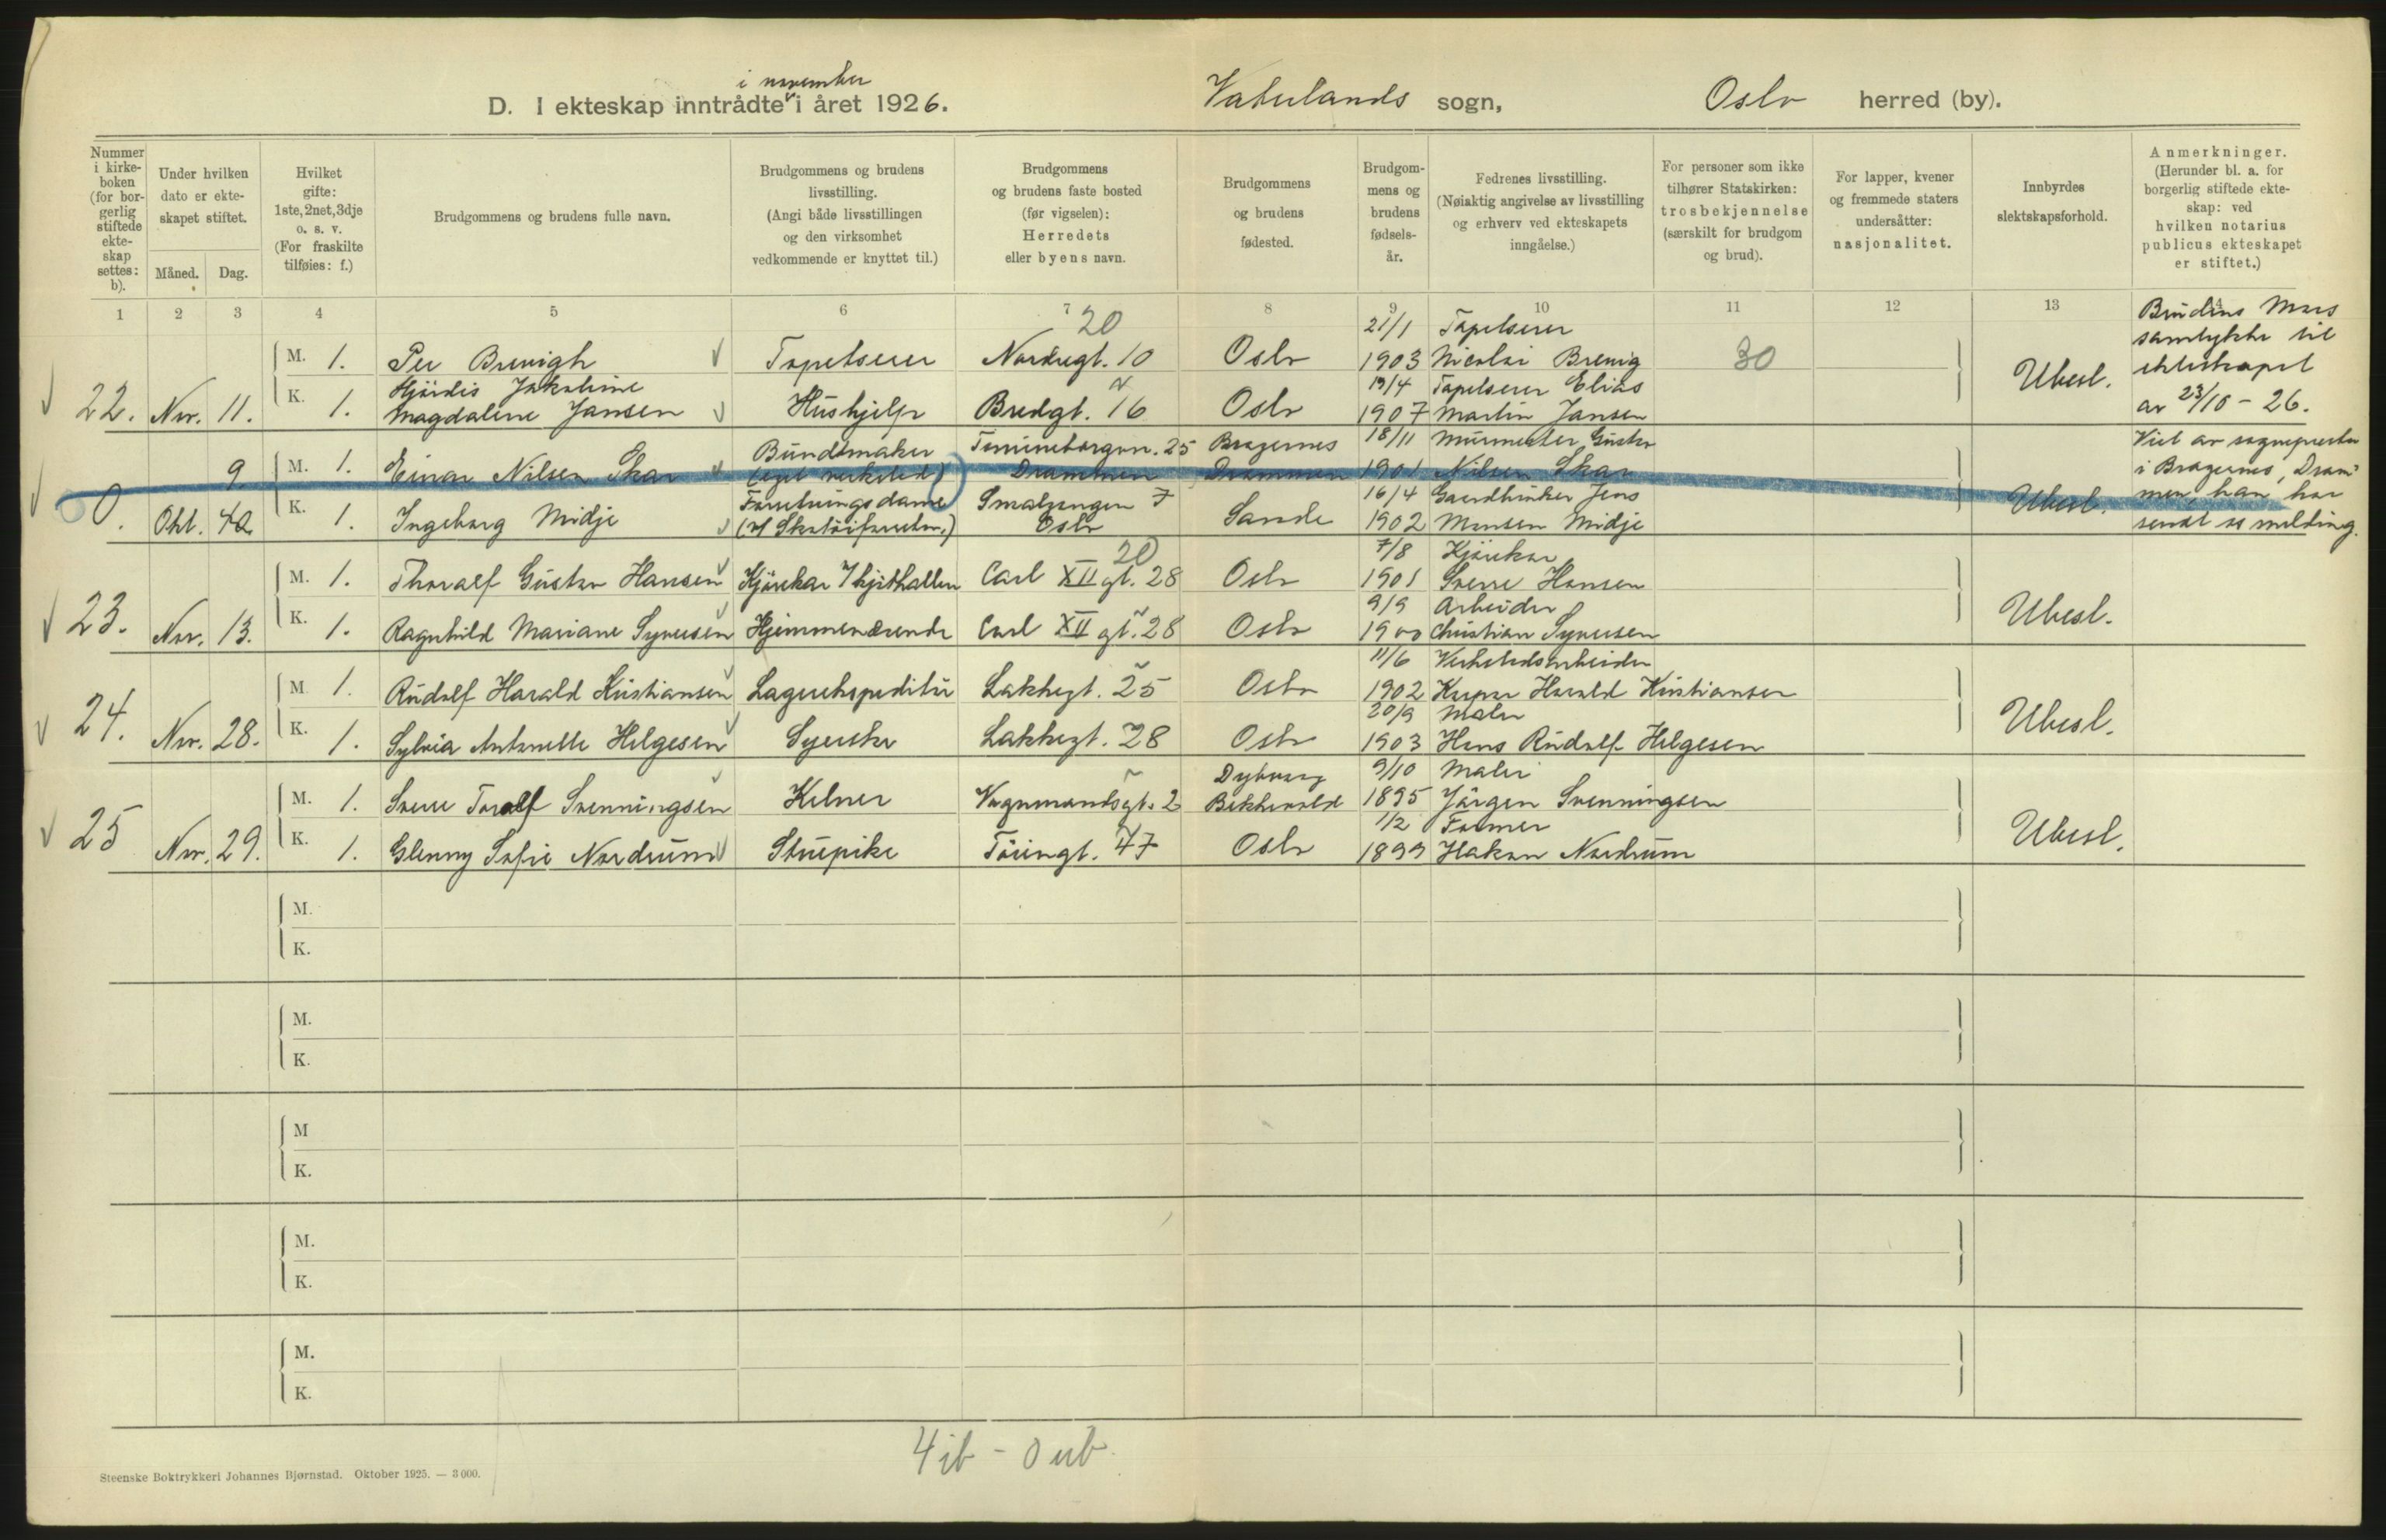 i november
D. I ekteskap inntrådte i året 1926. Vaterlands sogn, Oslo herred (by).
Nummer i kirke-boken (for bor-gerlig stiftede ekte-skap settes: b).
Under hvilken dato er ekte-skapet stiftet.
Måned. Dag.
Hvilket gifte: 1ste, 2net, 3dje o. s. v. (For fraskilte tilføies: f.)
Brudgommens og brudens fulle navn.
Brudgommens og brudens livsstilling. (Angi både livsstillingen og den virksomhet vedkommende er knyttet til.)
Brudgommens og brudens faste bosted (før vigselen): Herredets eller byens navn.
Brudgommens og brudens fødested.
Brudgom-mens og brudens fødsels-år.
Fedrenes livsstilling. (Nøiaktig angivelse av livsstilling og erhverv ved ekteskapets inngåelse.)
For personer som ikke tilhører Statskirken: trosbekjennelse (særskilt for brudgom og brud).
For lapper, kvener og fremmede staters undersåtter: nasjonalitet.
Innbyrdes slektskapsforhold.
Anmerkninger. (Herunder bl. a. for borgerlig stiftede ekte-skap: ved hvilken notarius publicus ekteskapet er stiftet.)
1 2 3 4 5 6 7 8 9 10 11 12 13 14
20
M. 1. Per Brevigh Tapetserer Nordregt. 10 Oslo 21/1 1903 Tapetserer Nicolai Brevig 30
22. Nov. 11. K. 1. Hjördis Jakobine Magdalene Jansen Hushjelp Bredgt. 16 Oslo 13/4 1907 Tapetserer Elias Martin Jansen Ubesl.
Brudens Mors samtykke til ekteskapet av 23/10 - 26.
9. M. 1. Einar Nilsen Skar Bundtmaker (eget verksted) 25 Drammen Bragernes Drammen 18/11 1901 Murmester Gustav Nilsen Skar
0. Okt. K. 1. Ingeborg Midje Forretningsdame (i Skotöiforretn.) Smalgangen 7 Oslo Sande 16/4 1902 Gaardbruker Jens Monsen Midje Ubesl.
Viet av sognepresten i Bragernes, Drammen, han har sendt melding.
20
M. 1. Thoralf Gustav Hansen Kjörekar Carl XII gt. 28 Oslo 7/8 1901 Kjörekar Sverre Hansen
23. Nov. 13. K. 1. Ragnhild Mariane Syversen Hjemmeværende Carl XII gt. 28 Oslo 9/9 1900 Arbeider Christian Syversen Ubesl.
M. 1. Rudolf Harald Kristiansen Lagerekspeditör Lakkegt. 25 Oslo 11/6 1902 Verkstedsarbeider Kaspar Harald Kristiansen
24. Nov. 28. K. 1. Sylvia Antonette Helgesen Syerske Lakkegt. 28 Oslo 20/9 1903 Maler Hans Rudolf Helgesen Ubesl.
M. 1. Sverre Toralf Svenningsen Kelner Vognmandsgt. 2 Dybvaag 9/10 1895 Maler Jörgen Svenningsen
25 Nov. 29. K. 1. Glenny Sofie Nordrum Stuepike Töiengt. 47 Oslo 1/2 1899 Former Hakon Nordrum Ubesl.
M.
K.
M.
K.
M
K.
M.
K.
M.
K.
4 ib - 0 ub.
Steenske Boktrykkeri Johannes Bjørnstad. Oktober 1925. — 3 000.